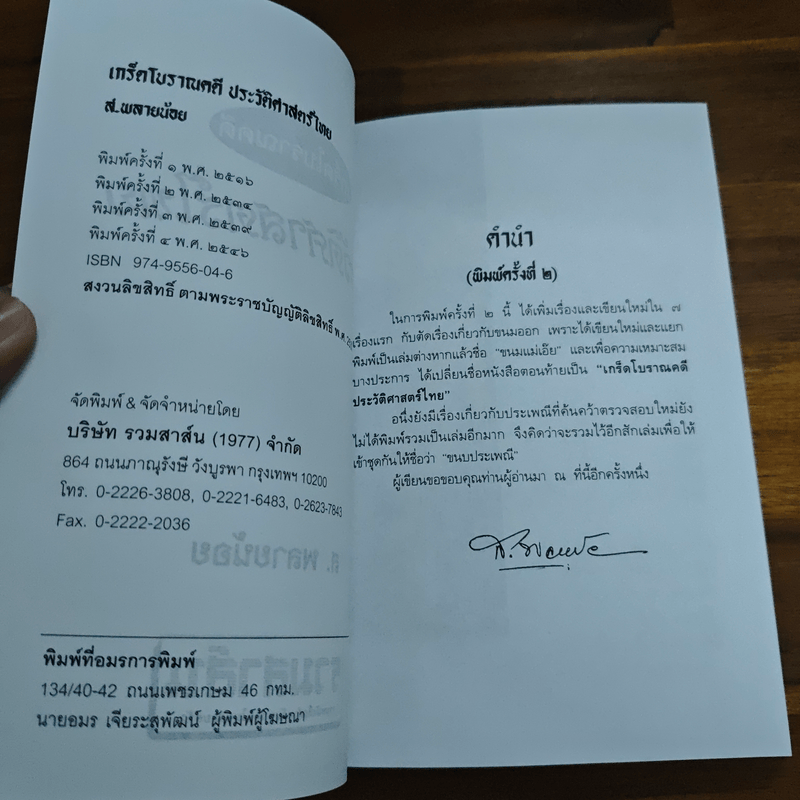 เกร็ดโบราณคดี ประวัติศาสตร์ไทย
ส.พลายน้อย
พิมพ์ครั้งที่ ๑ พ.ศ. ๒๕๑๖
พิมพ์ครั้งที่ ๒ พ.ศ. ๒๕๓๔
พิมพ์ครั้งที่ ๓ พ.ศ. ๒๕๓๙
พิมพ์ครั้งที่ ๔ พ.ศ. ๒๕๔๖
ISBN 974-9556-04-6
สงวนลิขสิทธิ์ ตามพระราชบัญญัติลิขสิทธิ์ พ.ศ.
จัดพิมพ์ & จัดจำหน่ายโดย
บริษัท รวมสาส์น (1977) จำกัด
864 ถนนภาณุรังษี วังบูรพา กรุงเทพฯ 10200
โทร. 0-2226-3808, 0-2221-6483, 0-2623-7843
Fax. 0-2222-2036
พิมพ์ที่อมรการพิมพ์
134/40-42 ถนนเพชรเกษม 46 กทม.
นายอมร เจียระสุพัฒน์ ผู้พิมพ์ผู้โฆษณา
คำนำ
(พิมพ์ครั้งที่ ๒)
ในการพิมพ์ครั้งที่ ๒ นี้ ได้เพิ่มเรื่องและเขียนใหม่ใน ๗
เรื่องแรก กับตัดเรื่องเกี่ยวกับขนมออก เพราะได้เขียนใหม่และแยก
พิมพ์เป็นเล่มต่างหากแล้วชื่อ "ขนมแม่เอ๊ย" และเพื่อความเหมาะสม
บางประการ ได้เปลี่ยนชื่อหนังสือตอนท้ายเป็น "เกร็ดโบราณคดี
ประวัติศาสตร์ไทย"
อนึ่งยังมีเรื่องเกี่ยวกับประเพณีที่ค้นคว้าตรวจสอบใหม่ยัง
ไม่ได้พิมพ์รวมเป็นเล่มอีกมาก จึงคิดว่าจะรวมไว้อีกสักเล่มเพื่อให้
เข้าชุดกันให้ชื่อว่า "ขนบประเพณี"
ผู้เขียนขอขอบคุณท่านผู้อ่านมา ณ ที่นี้อีกครั้งหนึ่ง